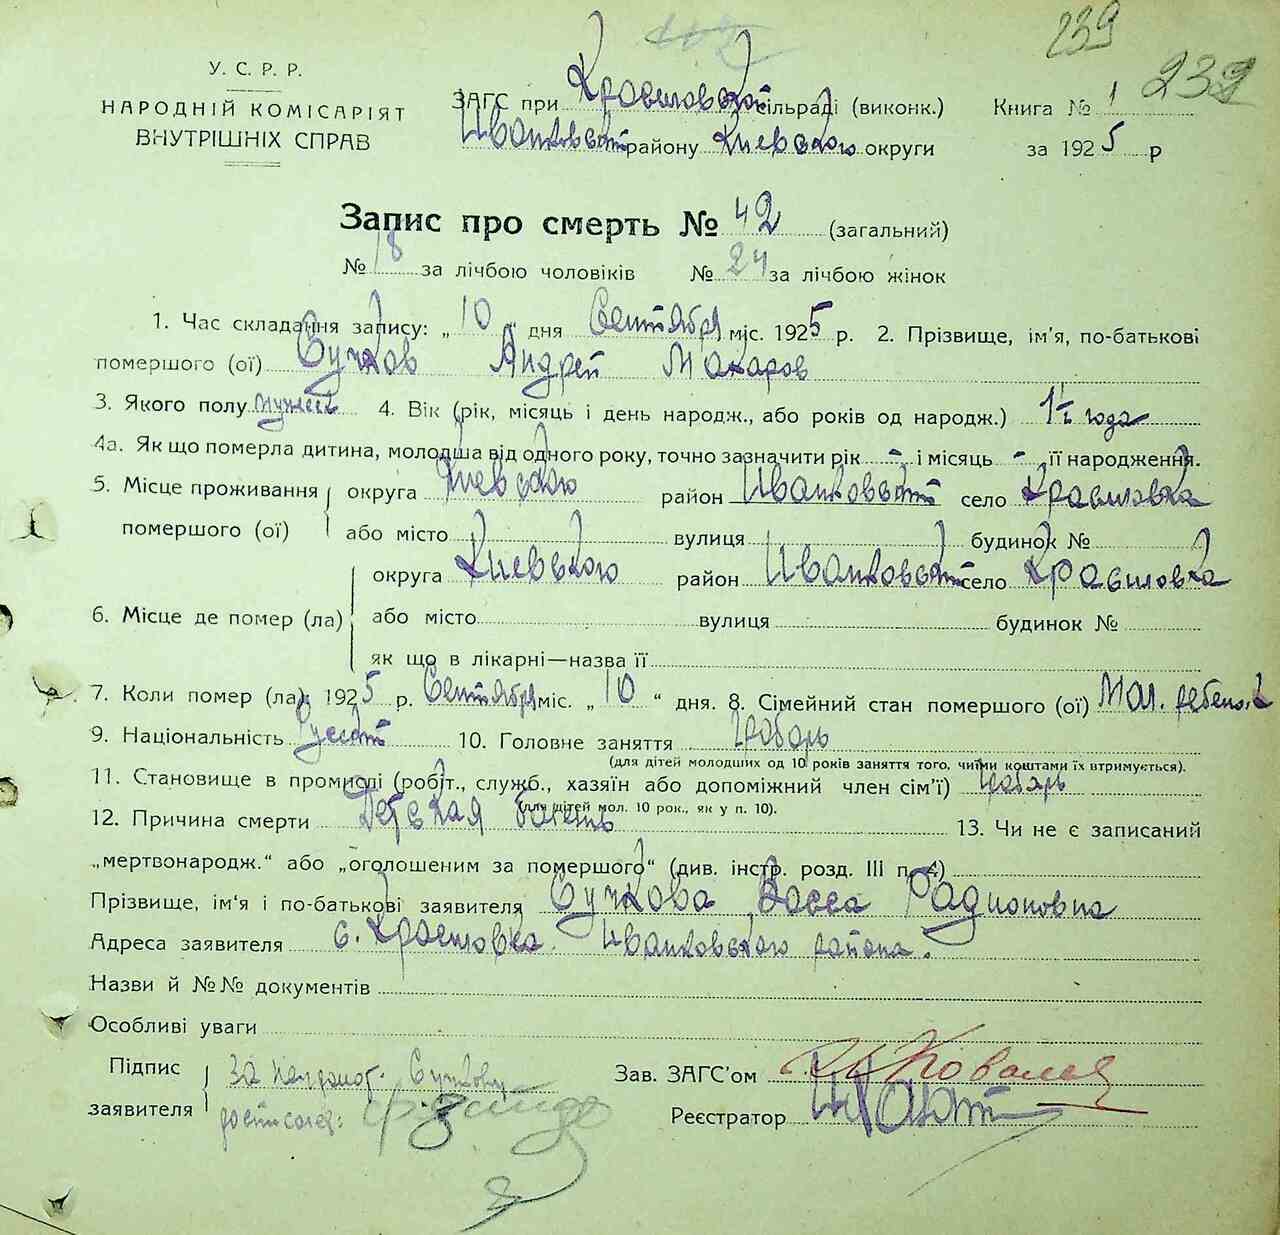 239
232
У. С. Р. Р.
НАРОДНІЙ КОМІСАРІЯТ
ВНУТРІШНІХ СПРАВ
ЗАГС при Красиловской сільраді (виконк.) Книга № 1
Иванковский району Киевского округи за 1925 р
Запис про смерть № 42 (загальний)
№ 18 за лічбою чоловіків № 24 за лічбою жінок
1. Час складання запису: „ 10 “ дня Сентября міс. 1925 р. 2. Прізвище, ім'я, по-батькові
помершого (ої) Сучков Андрей Макаров
3. Якого полу мужск 4. Вік (рік, місяць і день народж., або років од народж.) 1½ года
4а. Як що померла дитина, молодша від одного року, точно зазначити рік - і місяць - її народження.
5. Місце проживання округа Киевского район Иванковский село Красиловка
помершого (ої) або місто вулиця будинок №
округа Киевского район Иванковский село Красиловка
6. Місце де помер (ла) або місто вулиця будинок №
як що в лікарні—назва її
7. Коли помер (ла): 1925 р. Сентября міс. „ 10 “ дня. 8. Сімейний стан помершого (ої) Мал. ребенок
9. Національність Русский 10. Головне заняття грабарь
(для дітей молодших од 10 років заняття того, чиїми коштами їх втримується).
11. Становище в промислі (робіт., служб., хазяїн або допоміжний член сім'ї) грабарь
(для дітей мол. 10 рок., як у п. 10).
12. Причина смерти Детская болезнь 13. Чи не є записаний
„мертвонародж.“ або „оголошеним за помершого“ (див. інстр. розд. III п. 4)
Прізвище, ім'я і по-батькові заявителя Сучкова Васса Радионовна
Адреса заявителя с. Красиловка Иванковского района.
Назви й №№ документів
Особливі уваги
Підпис За неграмот. Сучкову
заявителя
Зав. ЗАГС'ом Ковалев
Реєстратор